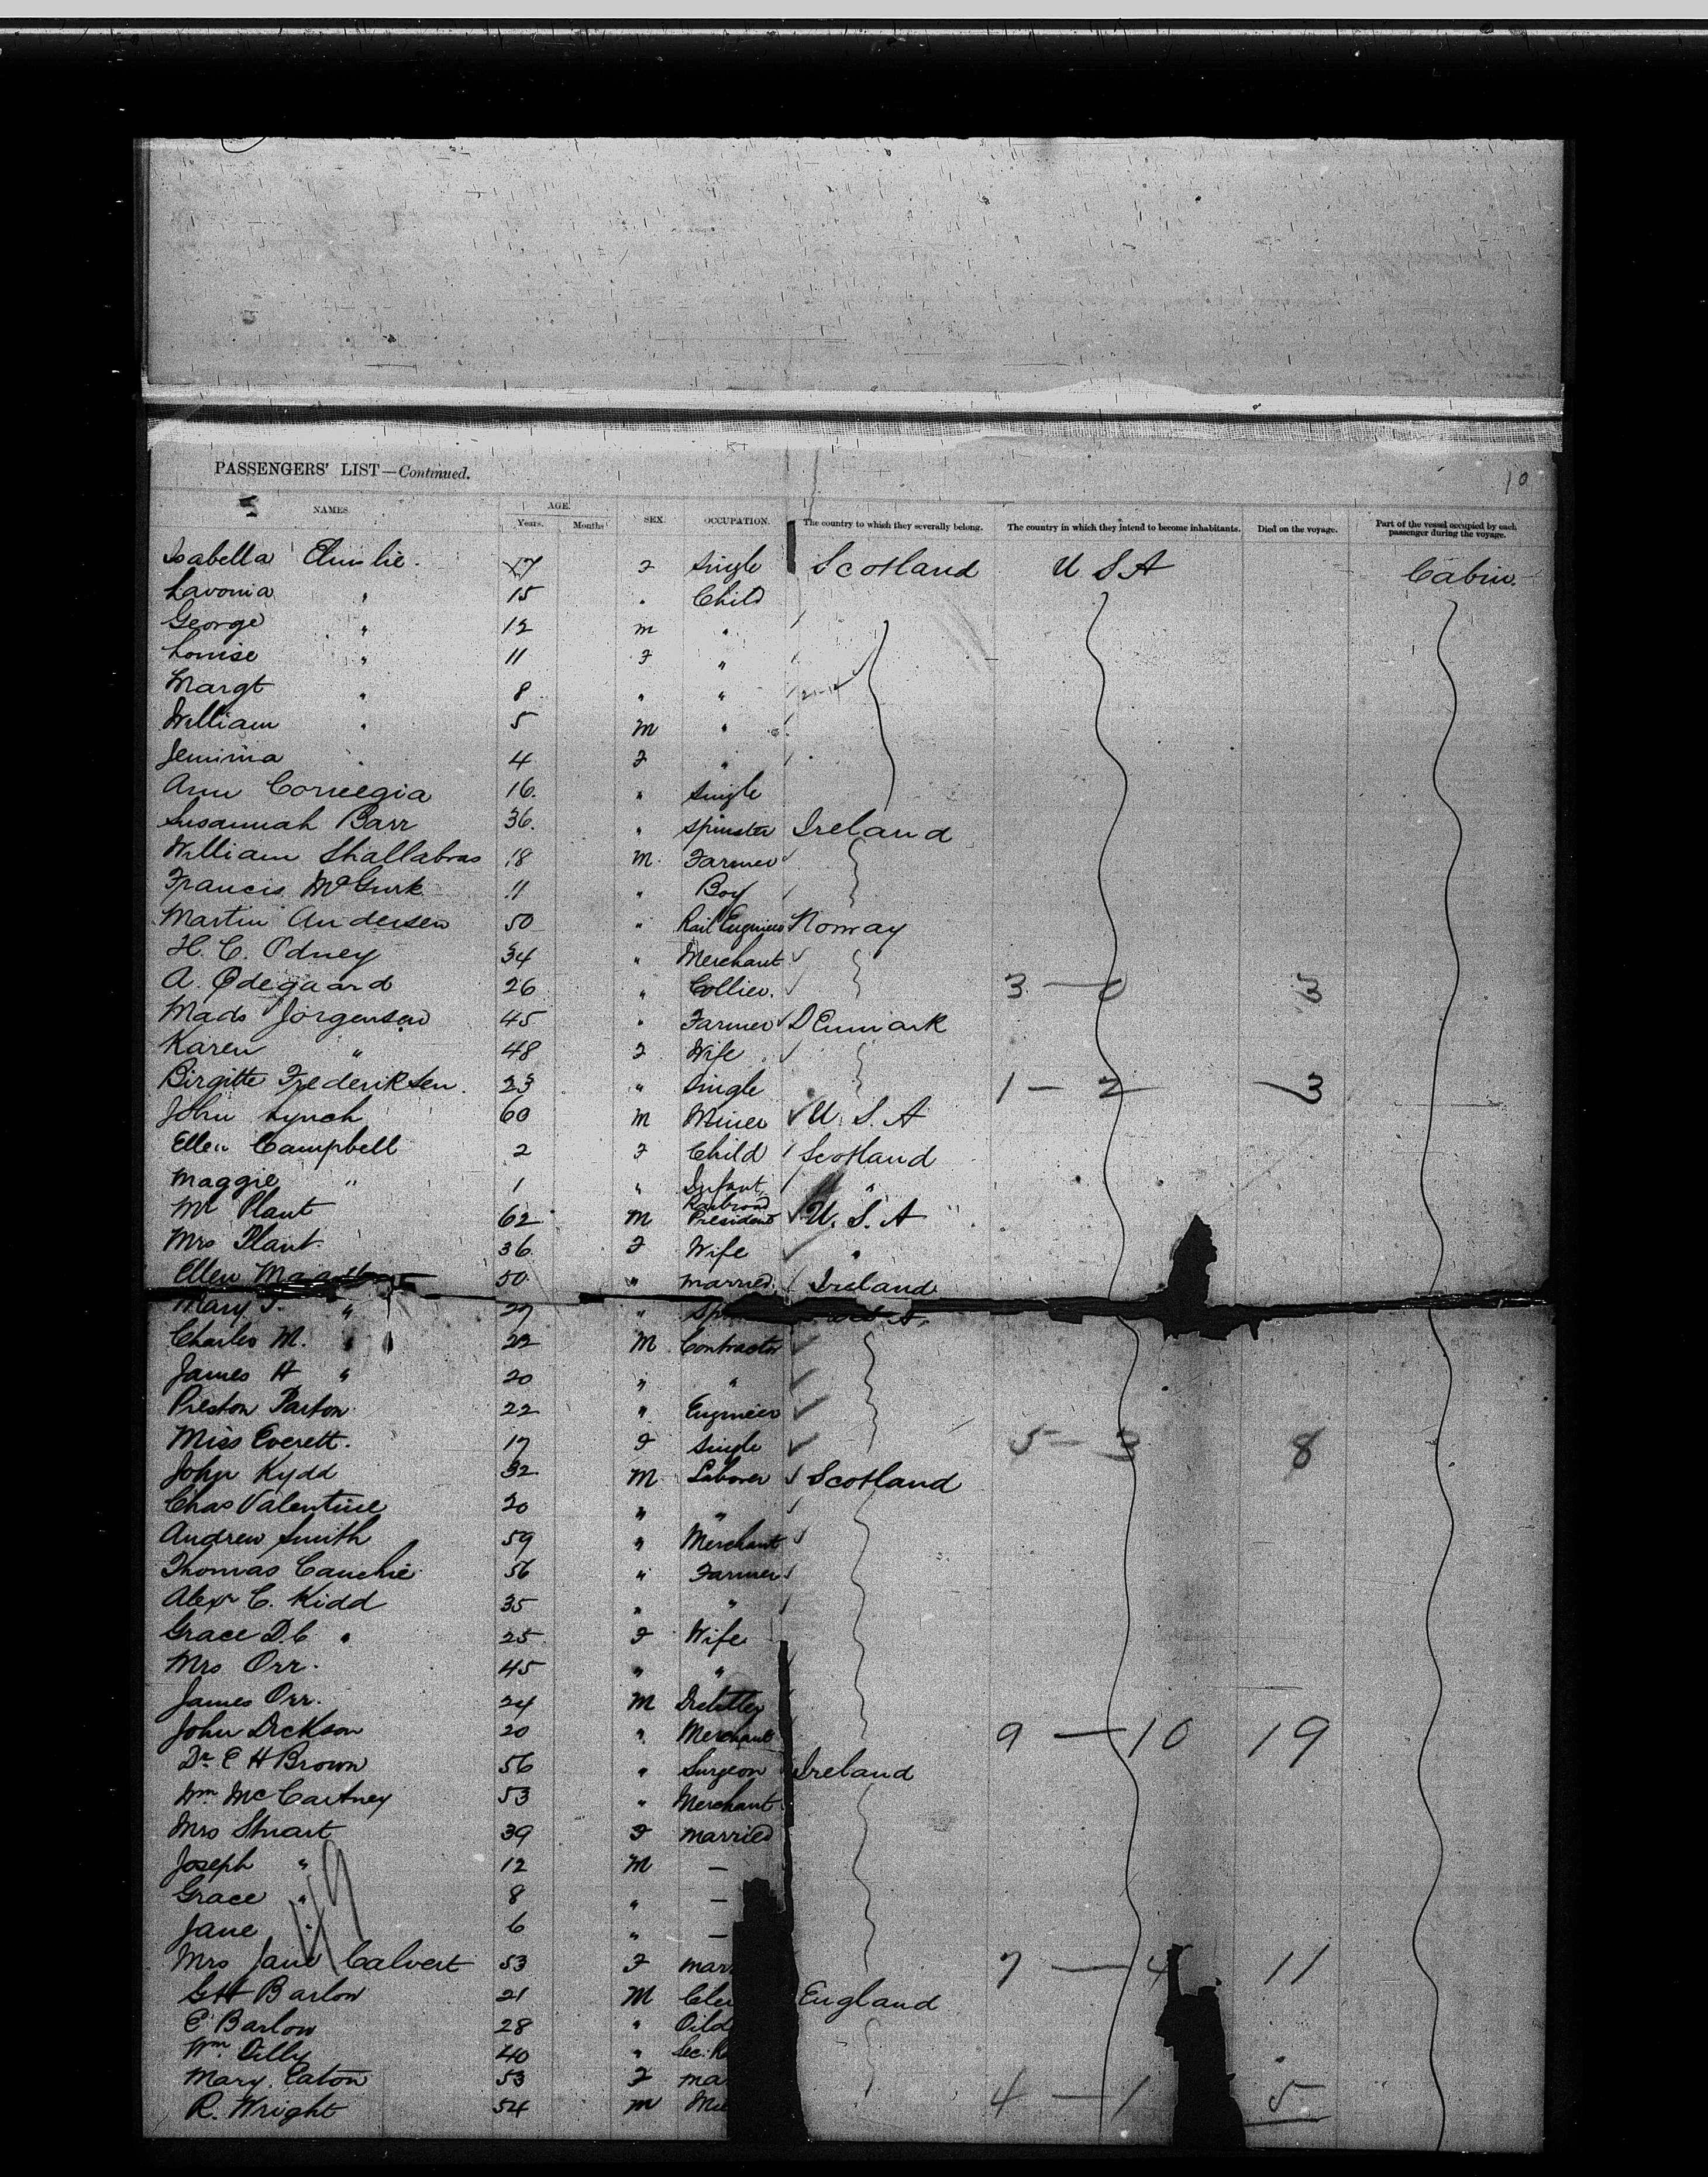 PASSENGERS' LIST—Continued.
10
NAMES. AGE. Years. Months SEX. OCCUPATION. The country to which they severally belong. The country in which they intend to become inhabitants. Died on the voyage. Part of the vessel occupied by each passenger during the voyage.
Isabella 17 F Single Scotland U S A Cabin.
Lavonia " 15 " Child
George " 12 M "
Louise " 11 F "
Margt " 8 " "
William " 5 M "
Jemima 4 F "
Ann 16 " Single
Susannah Barr 36 " Spinster Ireland
William 18 M Farmer
Francis McGurk 11 " Boy
Martin Andersen 50 " Rail Engineer Norway
H. C. Odney 34 " Merchant
A. Odegaard 26 " Collier. 3 — 0 3
Mads Jorgensen 45 " Farmer Denmark
Karen " 48 F Wife
Birgitte Frederiksen 23 " Single 1 — 2 — 3
John Lynch 60 M Miner U. S. A
Ellen Campbell 2 F Child Scotland
Maggie " 1 " Infant "
Mr Plant 62 M Railroad President U. S. A
Mrs Plant 36 F Wife "
Ellen 50 " married Ireland
Mary J. " 27 "
Charles M. " 22 M Contractor
James H " 20 " "
Preston Parton 22 " Engineer
Miss Everett. 17 F Single 5 — 3 8
John Kydd 32 M Laborer Scotland
Chas Valentine 20 " "
Andrew Smith 59 " Merchant
Thomas 56 " Farmer
Alexr C. Kidd 35 " "
Grace D. C " 25 F Wife
Mrs Orr. 45 " "
James Orr. 24 M
John Dickson 20 " Merchant 9 — 10 19
Dr E H Brown 56 " Surgeon Ireland
Wm McCartney 53 " Merchant
Mrs Stuart 39 F married
Joseph " 12 M —
Grace " 8 " —
Jane " 6 " —
49
Mrs Jane Calvert 53 F mar 7 — 4 11
G H Barlow 21 M Cle England
E Barlow 28 "
Wm Dilly 40 " Sec.
Mary Eaton 53 F ma
R. Wright 54 M 4 — 1 5